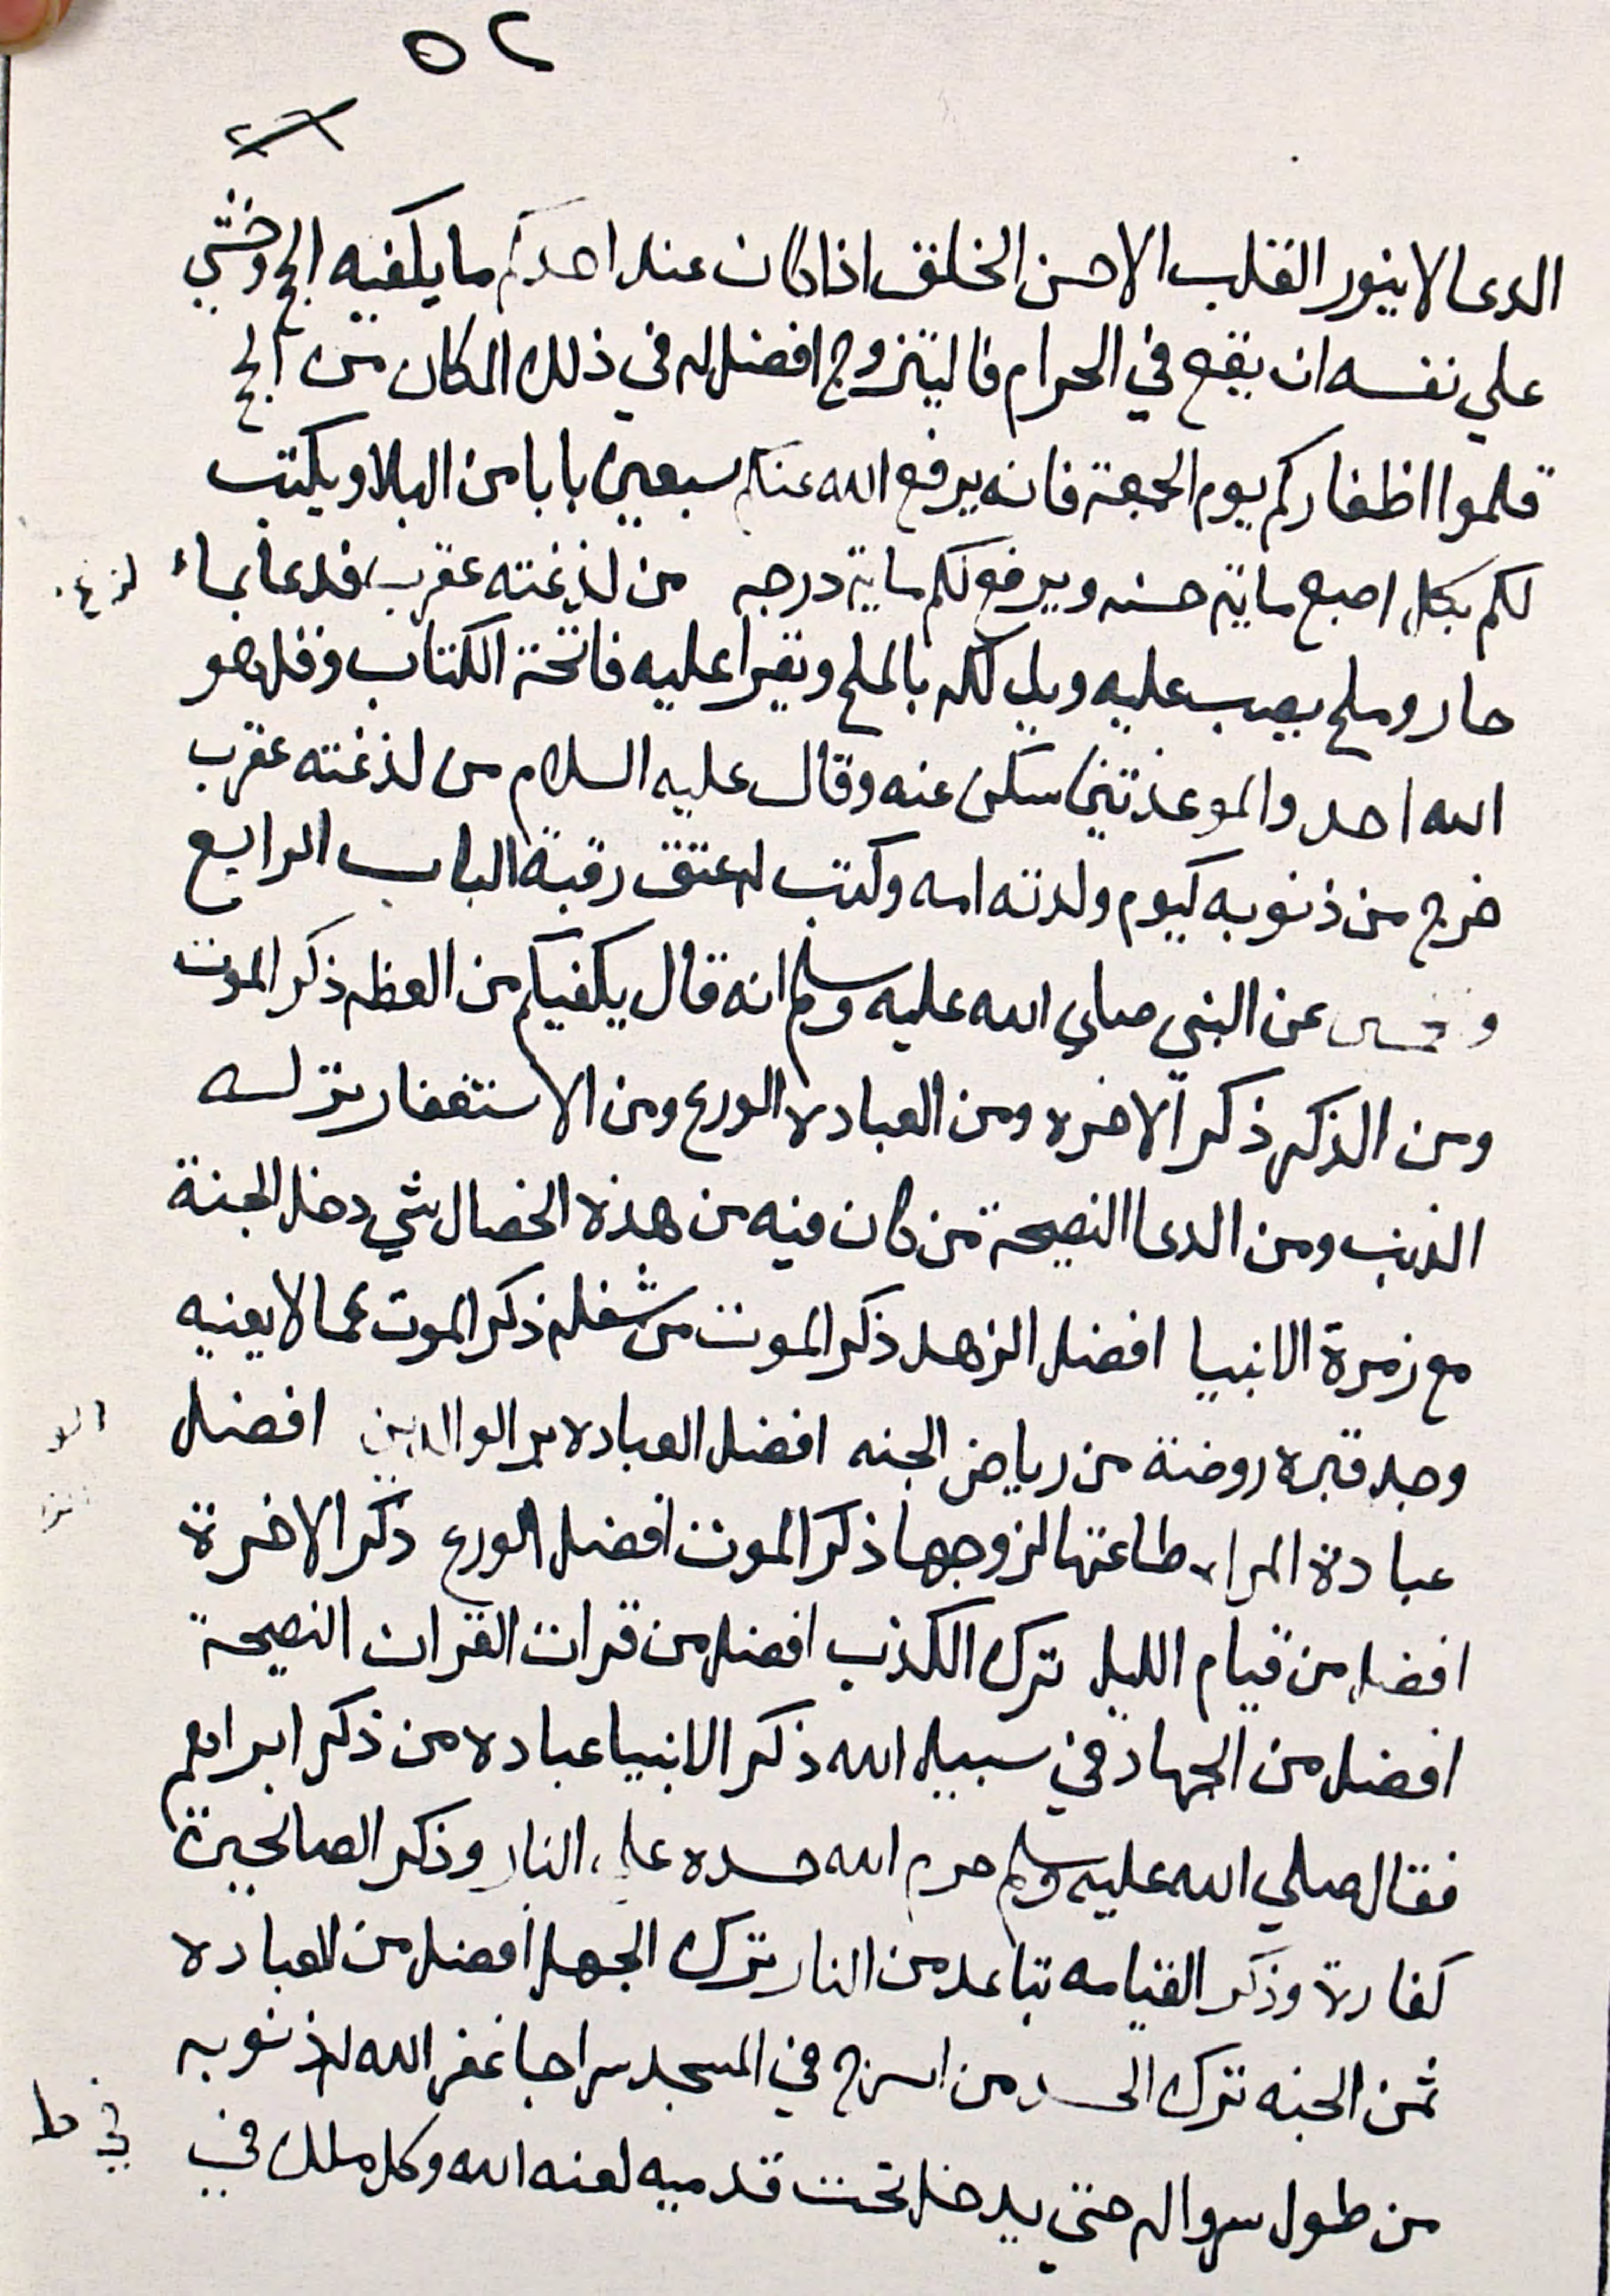 ٥٢
الدعا لا ينور القلب الاحسن الخلق اذا كان عند احدكم ما يكفيه الحج وخشي
علي نفسه ان يقع في الحرام فاليتزوج افضل له في ذلك المكان من الحج
قلموا اظفاركم يوم الجمعة فانه يرفع الله عنكم سبعين بابا من البلا ويكتب
لكم بكل اصبع ماية حسنه ويرفع لكم ماية درجه من لذغته عقرب فدعا بماء
حار وملح يصب عليه ويدلكه بالملح ويقرا عليه فاتحة الكتاب وقل هو
الله احد والموعذتين سكن عنه وقال عليه السلام من لذغته عقرب
خرج من ذنوبه كيوم ولدته امه وكتب له عتق رقبة الباب الرابع
وخمسين عن النبي صلي الله عليه وسلم انه قال يكفيكم من العظه ذكر الموت
ومن الذكر ذكر الاخره ومن العباده الورع ومن الاستغفار ترك
الذنب ومن الدعا النصيحة من كان فيه من هذه الخصال شي دخل الجنة
مع زمرة الانبيا افضل الزهد ذكر الموت من شغله ذكر الموت عما لا يعنيه
وجد قبره روضة من رياض الجنه افضل العباده بر الوالدين افضل
عبادة المراه طاعتها لزوجها ذكر الموت افضل الورع ذكر الاخرة
افضل من قيام الليل ترك الكذب افضل من قرات القران النصيحة
افضل من الجهاد في سبيل الله ذكر الانبيا عباده من ذكر ابراهيم
فقال صلي الله عليه وسلم حرم الله جسده علي النار وذكر الصالحين
كفارة وذكر القيامه تباعد من النار ترك الجهل افضل من العباده
ثمن الجنه ترك الحسد من اسرج في المسجد سراجا غفر الله له ذنوبه
من طول سرواله حتي يدخل تحت قدميه لعنه الله وكل ملك في